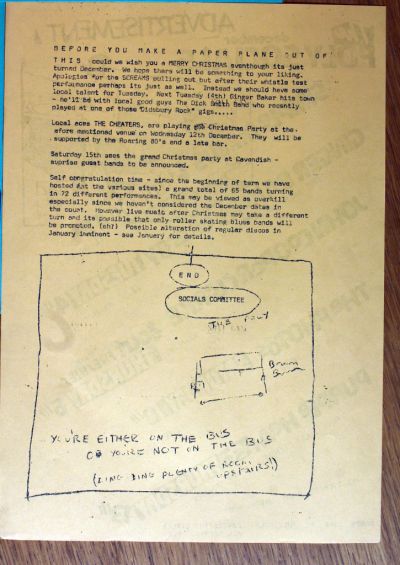 BEFORE YOU MAKE A PAPER PLANE OUT OF
THIS could we wish you a MERRY CHRISTMAS eventhough its just
turned December. We hope thers will be something to your liking.
Apologies for the SCREAMS pulling out but after their whistle test
performance perhaps its just as well. Instead we should have some
local talent for Tuesday. Next Tuesday (4th) Ginger Baker hits town
- he'll be with local good guys The Dick Smith Band who recently
played at one of those "Didsbury Rock" gigs.....
Local aces THE CHEATERS, are playing Christmas Party at the
efore mentioned venue on Wednesday 12th December. They will be
supported by the Roaring 80's and a late bar.
Saturday 15th sees the grand Christmas party at Cavendish -
suprise guest bands to be announced.
Self congratulation time - since the beginning of term we have
hosted (at the various sites) a grand total of 65 bands turning
in 72 different performances. This may be viewed as overkill
especially since we haven't considered the December dates in
the count. However live music after Christmas may take a different
turn and its possible that only roller skating blues bands will
be promoted. (eh?) Possible alteration of regular discos in
January imminent - see January for details.
END
SOCIALS COMMITTEE
THE POLY
YOU'RE EITHER ON THE BUS
OR YOU'RE NOT ON THE BUS
(DING DING PLENTY OF ROOM
UPSTAIRS!)